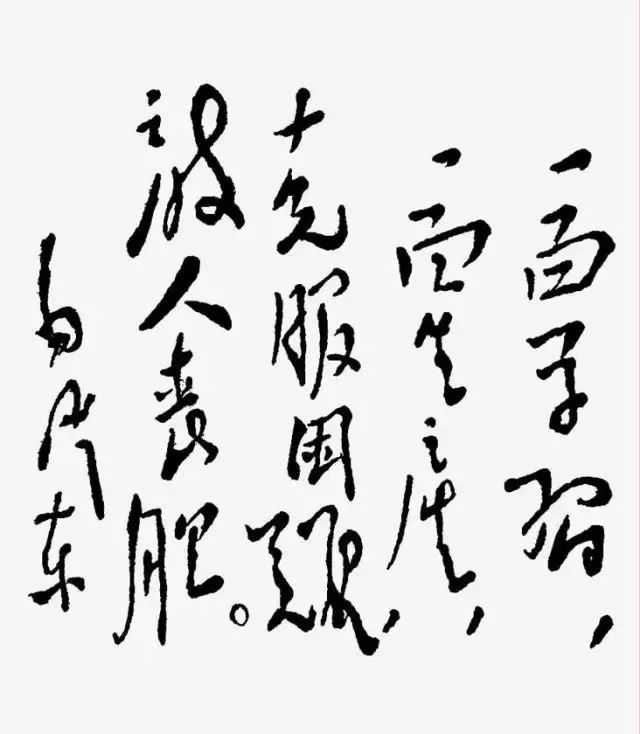 一面学习，
一面生产，
克服困难，
敌人丧胆。
毛泽东